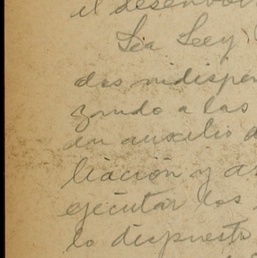 el desenvol
Sea Leey
dos indispen
zando a las
en auxilio d
liación y a
ejecutar los
lo dispuesto